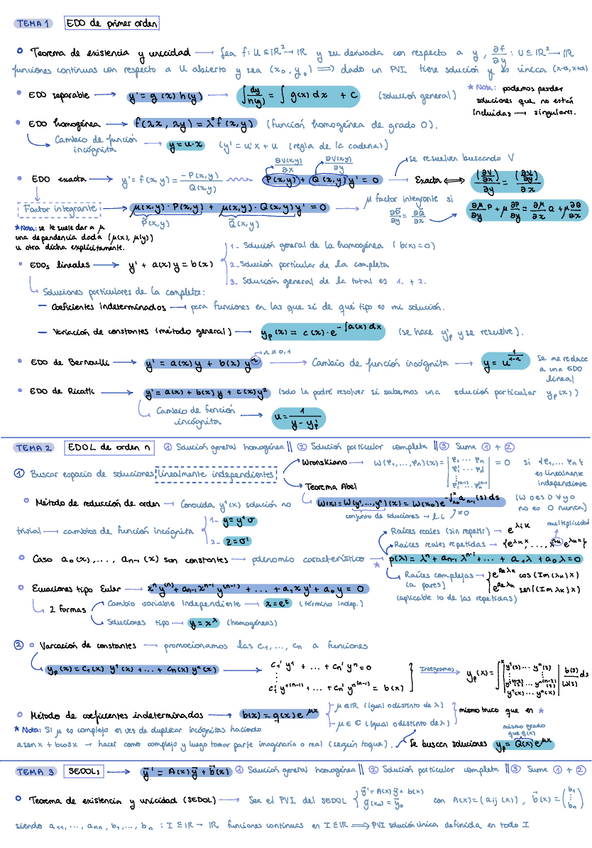 TEMA 1 EDO de primer orden
Teorema de existencia y unicidad → Sea f: U ⊆ IR² → IR y su derivada con respecto a y, ∂f/∂y : U ⊆ IR² → IR
funciones continuas con respecto a U abierto y sea (x₀, y₀) ⟹ dado un PVI, tiene solución y es única
EDO separable → y' = g(x) h(y) → ∫ dy/h(y) = ∫ g(x) dx + C (solución general)
* Nota: podemos perder
soluciones que no están
incluidas → singulares.
EDO homogénea → f(λx, λy) = λ⁰ f(x, y) (función homogénea de grado 0).
Cambio de función
incógnita → y = u·x (y' = u'x + u (regla de la cadena))
EDO exacta → y' = f(x, y) = -P(x, y)/Q(x, y) P(x, y) + Q(x, y) y' = 0 Exacta ⟺
Se resuelven buscando V
Factor integrante → μ(x, y) · P(x, y) + μ(x, y) · Q(x, y) y' = 0
μ factor integrante si
* Nota: se le suele dar a μ
una dependencia dada (μ(x), μ(y))
u otra dicha explícitamente.
EDOs lineales → y' + a(x) y = b(x)
1- Solución general de la homogénea (b(x) = 0)
2- Solución particular de la completa
3- Solución general de la total es 1. + 2.
Soluciones particulares de la completa:
— Coeficientes indeterminados → para funciones en las que sé de qué tipo es mi solución.
— Variación de constantes (método general) → yp(x) = c(x) · e^(-∫a(x)dx) (se hace y'p y se resuelve).
EDO de Bernoulli → y' = a(x) y + b(x) yⁿ → Cambio de función incógnita → y = u^(1/(1-n))
n ≠ 0,1
Se me reduce
a una EDO
lineal
EDO de Ricatti → y' = a(x) + b(x) y + c(x) y² (solo la podré resolver si sabemos una solución particular yp(x))
Cambio de función
incógnita → u = 1/(y - yp)
TEMA 2 EDOL de orden n ① Solución general homogénea ‖ ② Solución particular completa ‖ ③ Sume ① + ②
① Buscar espacio de soluciones linealmente independientes
Wronskiano → W(φ₁, ..., φₙ)(x) = = 0 si {φ₁ ... φₙ}
es linealmente
independiente
Teorema Abel
conjunto de soluciones → l.i.
(W o es 0 ∀y o
no es 0 nunca)
Método de reducción de orden → Conocida y¹(x) solución no
trivial → cambios de función incógnita
1-
2-
Raíces reales (sin repetir) → e^(λₖx)
multiplicidad
Raíces reales repetidas →
Caso a₀(x), ..., aₙ₋₁(x) son constantes → polinomio característico → p(λ) = λⁿ + aₙ₋₁ λⁿ⁻¹ + ... + a₁λ + a₀ = 0
Raíces complejas
(a pares)
cos (Im(λₖ)x)
sen (Im(λₖ)x)
(aplicable lo de las repetidas)
Ecuaciones tipo Euler → xⁿ y⁽ⁿ⁾ + aₙ₋₁ xⁿ⁻¹ y⁽ⁿ⁻¹⁾ + ... + a₁ x y' + a₀ y = 0
2 formas
Cambio variable independiente → x = eᵗ (término indep.)
Soluciones tipo → y = x^λ (homogéneas)
② Variación de constantes → promocionamos las C₁, ..., Cₙ a funciones
yp(x) = C₁(x) y¹(x) + ... + Cₙ(x) yⁿ(x)
C₁' y¹ + ... + Cₙ' yⁿ = 0
C₁' y¹⁽ⁿ⁻¹⁾ + ... + Cₙ' yⁿ⁽ⁿ⁻¹⁾ = b(x)
Integramos
yp(x) =
Método de coeficientes indeterminados → b(x) = q(x) e^(μx)
μ ∈ IR (igual o distinto de λ)
μ ∈ C (igual o distinto de λ)
mismo truco que en *
* Nota: Si μ es complejo en vez de duplicar incógnitas haciendo
a sen x + b cos x → hacer como complejo y luego tomar parte imaginaria o real (según toque).
Se buscan soluciones yp = Q(x) e^(μx)
mismo grado
que q(x)
TEMA 3 SEDOLs → y' = A(x) y + b(x) ① Solución general homogénea ‖ ② Solución particular completa ‖ ③ Sume ① + ②
Teorema de existencia y unicidad (SEDOL) → Sea el PVI del SEDOL y' = A(x) y + b(x) con A(x) = (aij(x)), b(x) = (b₁ ⋮ bₙ)
siendo a₁₁, ..., aₙₙ, b₁, ..., bₙ : I ⊆ IR → IR funciones continuas en I ⊆ IR ⟹ PVI solución única definida en todo I